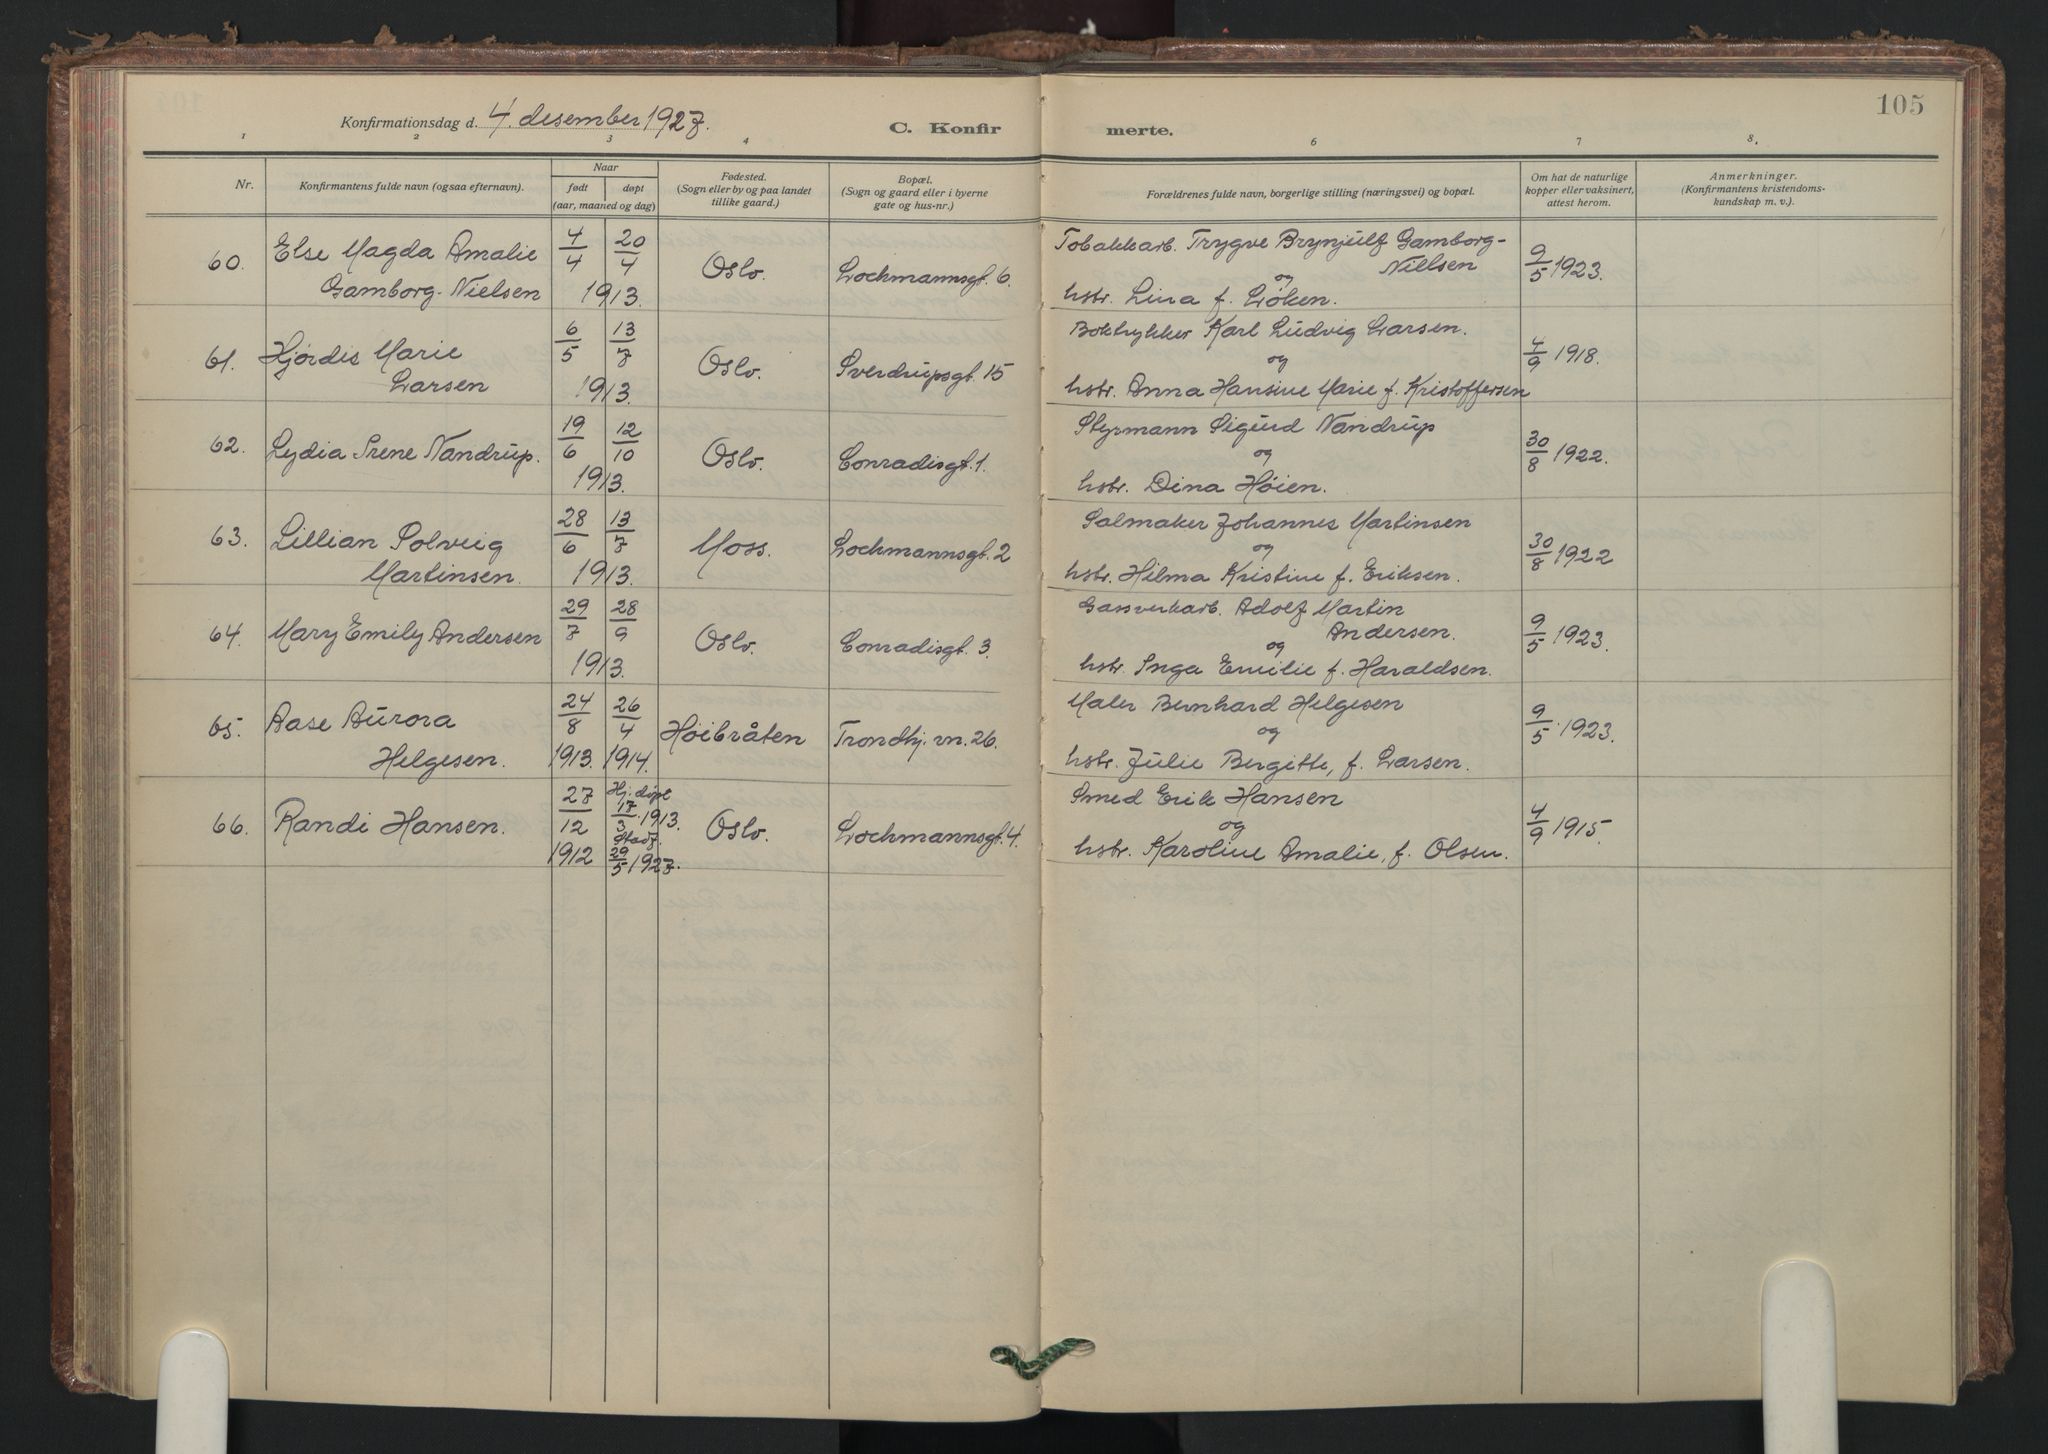 105
Konfirmationsdag d. 4. desember 1927.
C. Konfirmerte.
1 2 3 4 6 7 8.
Nr.
Konfirmantens fulde navn (ogsaa efternavn).
Naar
født døpt
(aar, maaned og dag)
Fødested.
(Sogn eller by og paa landet
tillike gaard.)
Bopæl.
(Sogn og gaard eller i byerne
gate og hus-nr.)
Forældrenes fulde navn, borgerlige stilling (næringsvei) og bopæl.
Om hat de naturlige
kopper eller vaksinert,
attest herom.
Anmerkninger.
(Konfirmantens kristendoms-
kundskap m. v.).
60. Else Magda Amalie
Gamborg-Nielsen
4/4 20/4
1913.
Oslo.
Lochmannsgt. 6.
Tobakkarb. Trygve Brynjulf Gamborg-
Nielsen
og
hstr. Lina f. Løken.
9/5 1923.
61. Hjørdis Marie
Larsen
6/5 13/7
1913.
Oslo.
Sverdrupsgt. 15
Boktrykker Karl Ludvig Larsen.
og
hstr. Anna Hansine Marie f. Kristoffersen
4/9 1918.
62. Lydia Irene Nandrup.
19/6 12/10
1913.
Oslo.
Conradisgt. 1.
Styrmann Sigurd Nandrup
og
hstr. Dina Høien.
30/8 1922.
63. Lillian Solveig
Martinsen.
28/6 13/7
1913.
Moss.
Lochmannsgt. 2
Salmaker Johannes Martinsen
og
hstr. Hilma Kristine f. Eriksen.
30/8 1922
64. Mary Emily Andersen
29/7 28/9
1913.
Oslo.
Conradisgt. 3.
Gassverkarb. Adolf Martin
Andersen.
og
hstr. Inga Emilie f. Haraldsen.
9/5 1923.
65. Aase Aurora
Helgesen.
24/8 26/4
1913. 1914.
Høibråten
Trondhj. vn. 26.
Maler Bernhard Helgesen
og
hstr. Julie Bergitte, f. Larsen.
9/5. 1923.
66. Randi Hansen.
27/12 1912
Hj. døpt
17/3. 1913.
Stadf.
29/5 1927.
Oslo.
Lochmannsgt. 4.
Smed Erik Hansen
og
hstr. Karoline Amalie, f. Olsen.
4/9 1915.